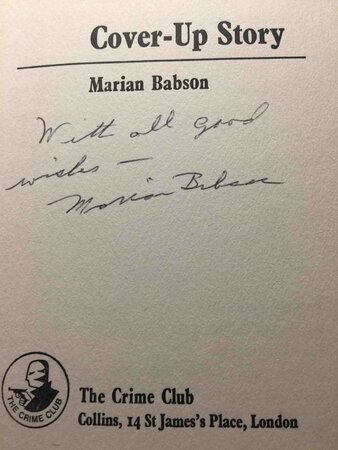 Cover-Up Story
Marian Babson
With all good
wishes —
Marian Babson
THE CRIME CLUB
The Crime Club
Collins, 14 St James's Place, London